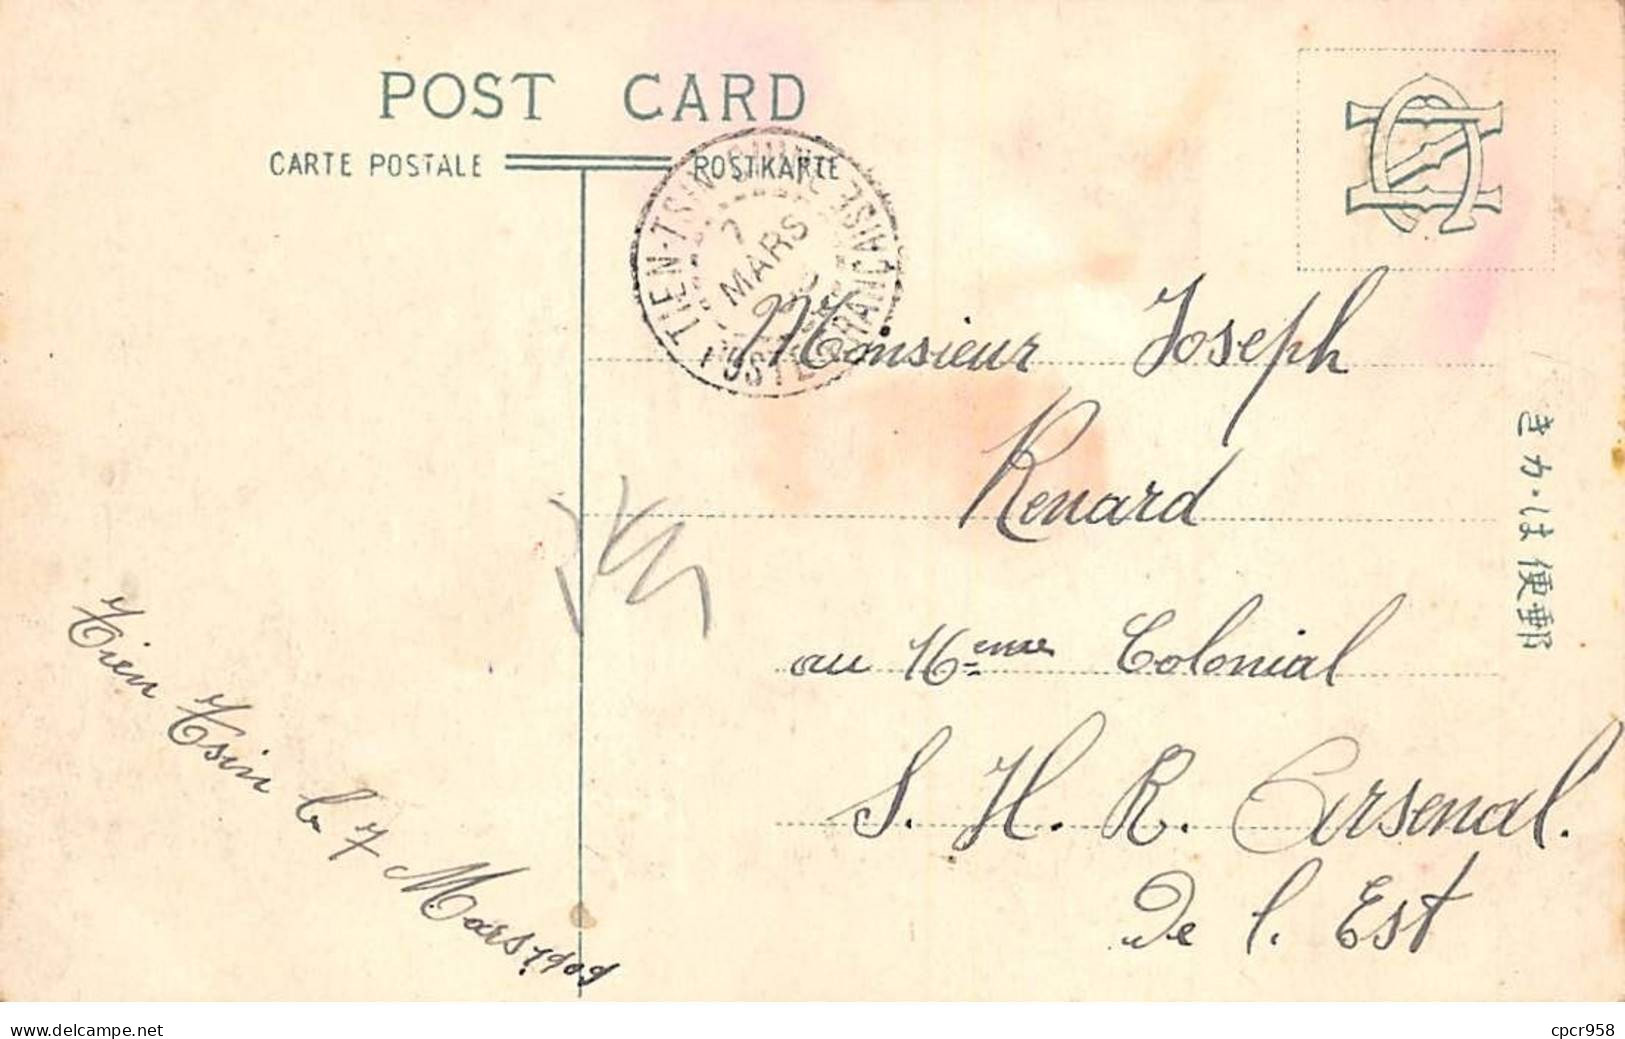 POST CARD
CARTE POSTALE
POSTKARTE
TIEN-TSIN CHINE
7
MARS
POSTE FRANÇAISE
Monsieur Joseph
Renard
au 16=eme Colonial
S. H. R. Arsenal.
De l. Est
Tien Tsin le 7 Mars. 1909
郵便は・カき
delcampe.net
cpcr958